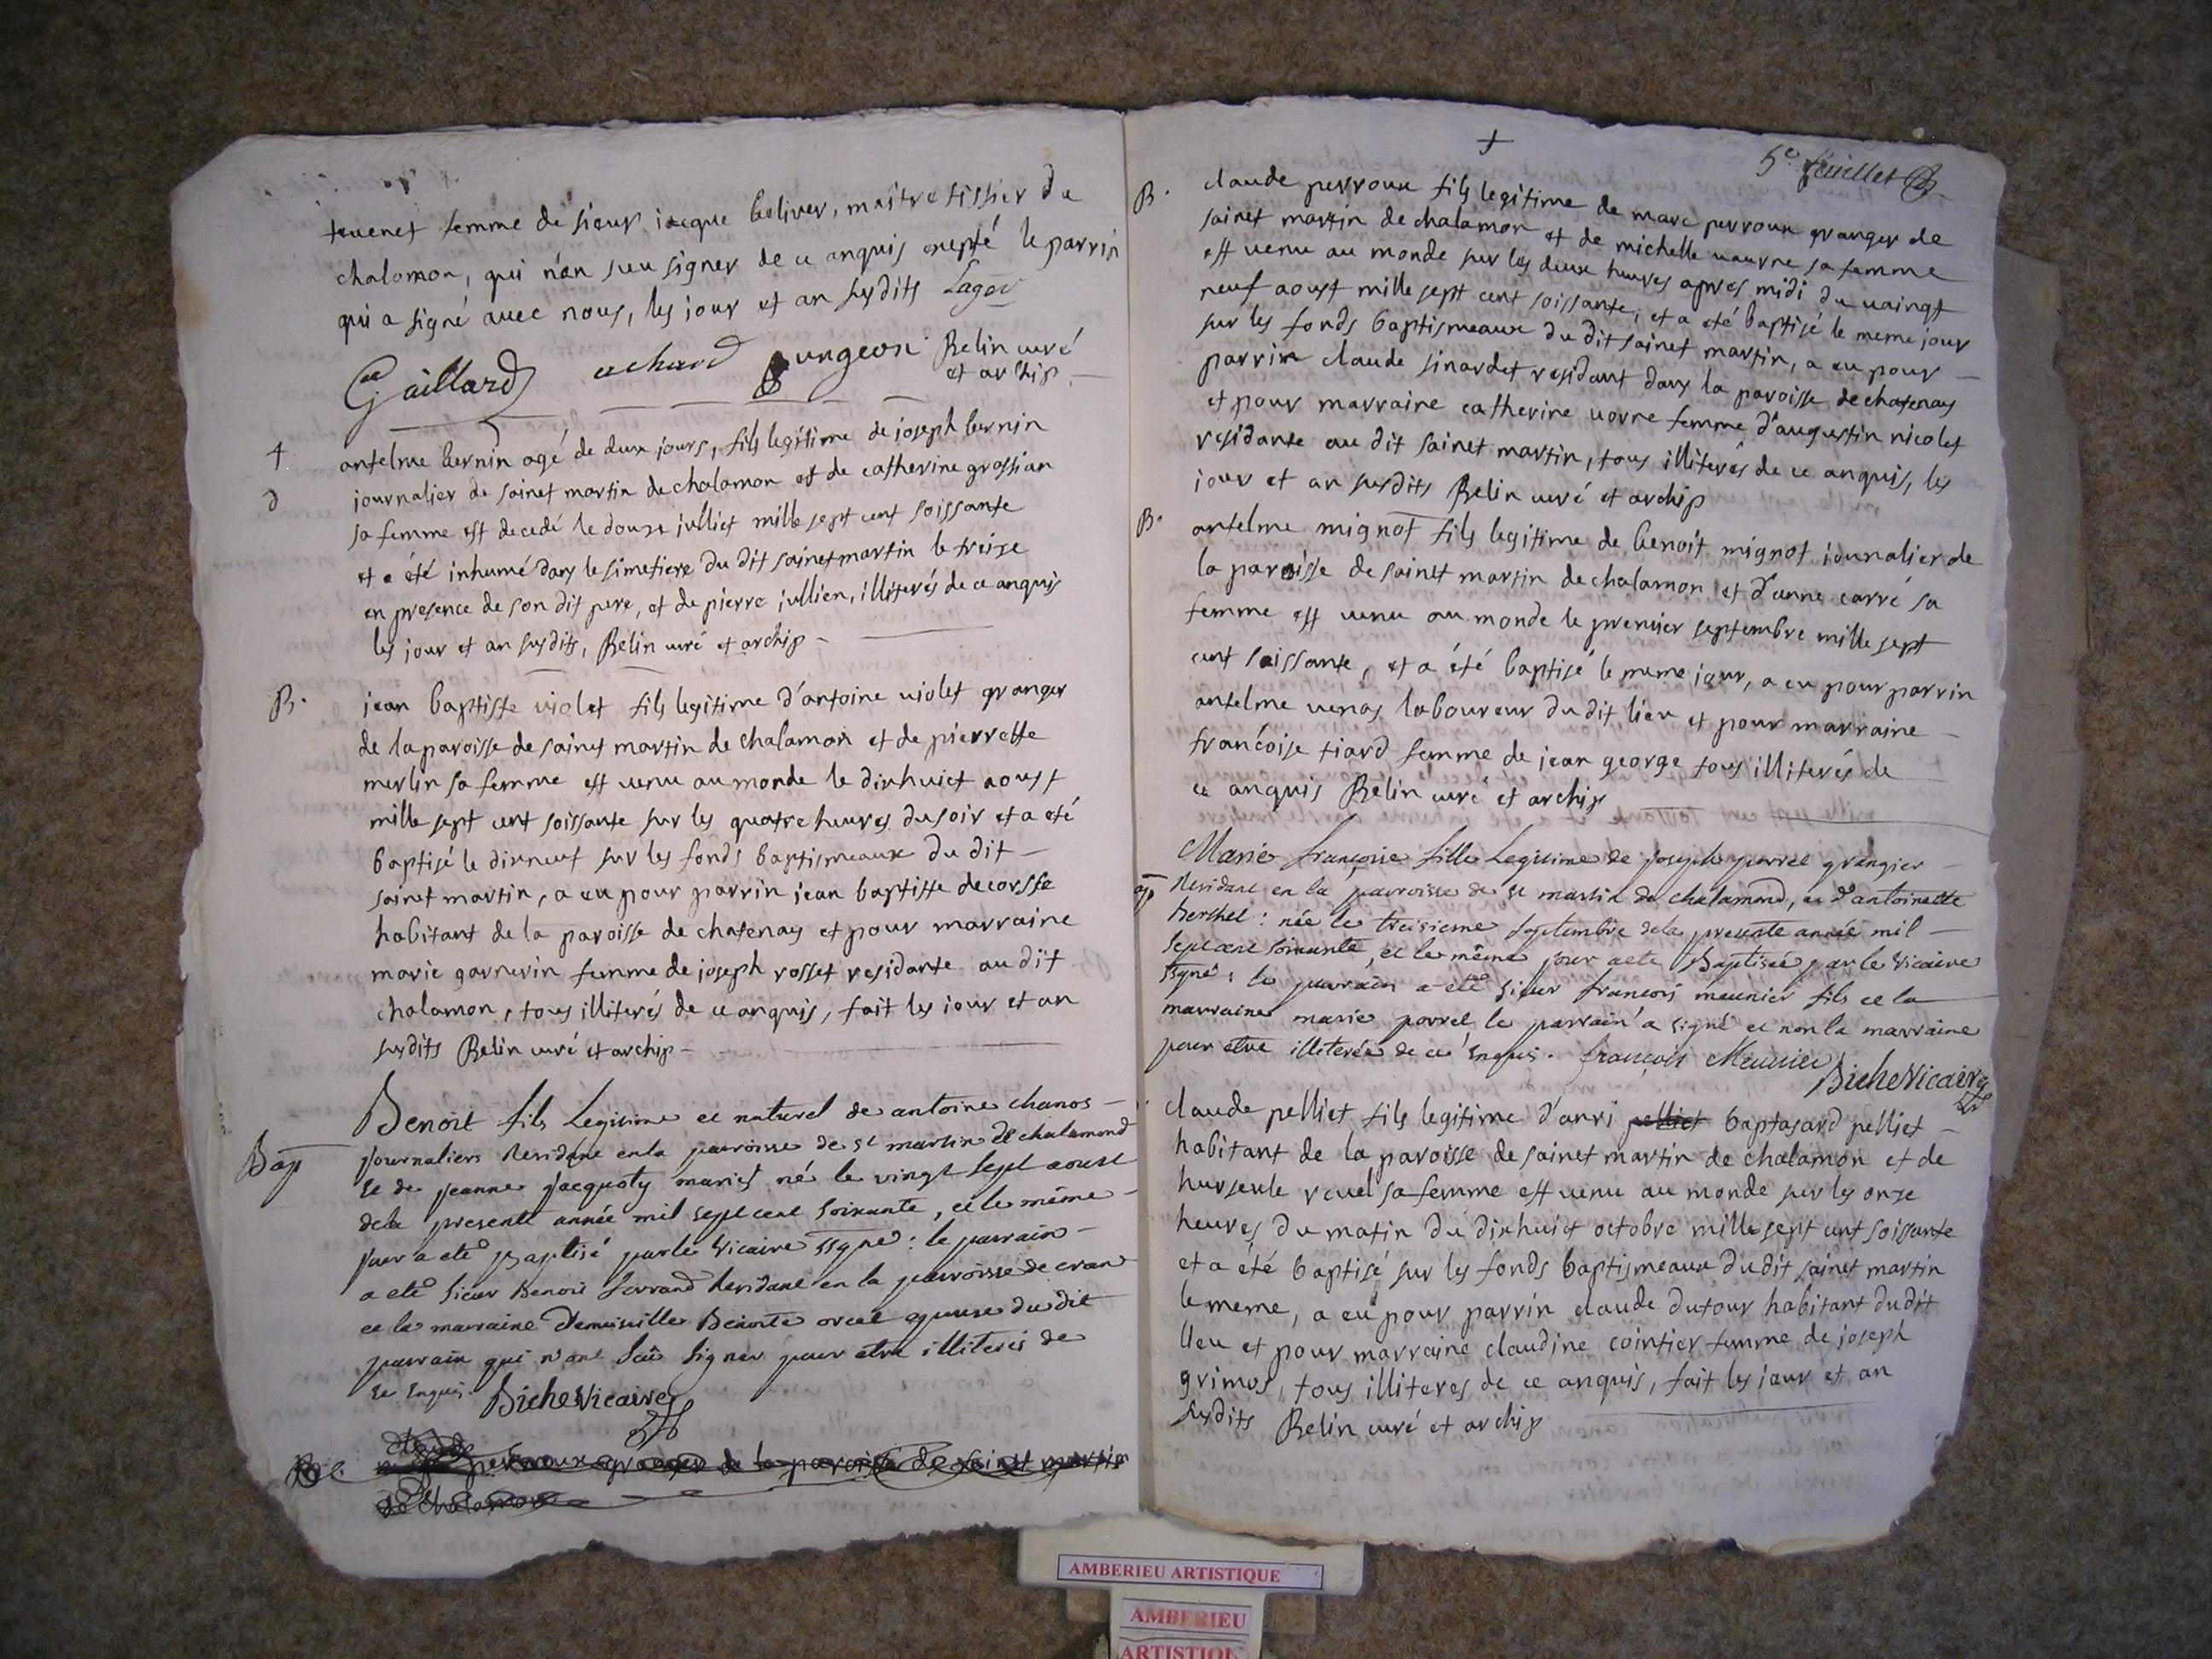 tevenet femme de sieur iacque beliver, maitre tissier du
chalamon, qui n'an sceu signer de ce anquis excepté le parrin
qui a signé avec nous, les jour et an susdits
Gaillard achard Burgeon Belin curé
et archip
antelme bernin agé de deux jours, fils legitime de joseph bernin
journalier de sainct martin de chalamon et de catherine grossian
sa femme est decedé le douze julliet mille sept cent soissante
et a été inhumé dans le simetiere du dit sainct martin le treize
en presence de son dit pere, et de pierre jullien, illiterés de ce anquis
les jour et an susdits, Belin curé et archip
B. jean baptiste violet fils legitime d'antoine violet granger
de la paroisse de sainct martin de chalamon et de pierrette
merlin sa femme est venu au monde le dixhuict aoust
mille sept cent soissante sur les quatre heures du soir et a eté
baptisé le dixneuf sur les fonds baptismeaux du dit
sainct martin, a eu pour parrin jean baptiste decorsse
habitant de la paroisse de chatenay et pour marraine
marie garnerin femme de joseph rosset residante au dit
chalamon, tous illiterés de ce anquis, fait les iour et an
susdits Belin curé et archip
Benoit fils Legitime et naturel de antoine chanos
Bap journaliers Residant en la parroisse de st martin de chalamond
et de jeanne jacquoty mariés né le vingt sept aoust
dela presente année mil sept cent soixante, et le même
jour a eté Baptisé par le vicaire ssgné : le parrain
a eté sieur Benoit ferrand Residant en la parroisse de cran
et la marraine Demoiselle Benoite orcel epouse du dit
parrain qui n'ont sçu signer pour etre illiterés de
ce Enquis. Biche vicaire
perroux granger de la paroisse de sainct martin
de chalamon
5e feuillet
B. claude perroux fils legitime de marc perroux granger de
sainct martin de chalamon et de michelle vaurne sa femme
est venu au monde sur les deux heures apres midi du vaingt
neuf aoust mille sept cent soissante, et a eté baptisé le meme jour
sur les fonds baptismeaux du dit sainct martin, a eu pour
parrin claude sinardet residant dans la paroisse de chatenay
et pour marraine catherine vorne femme d'augustin nicolet
residante au dit sainct martin, tous illiterés de ce anquis, les
iour et an susdits Belin curé et archip
B. antelme mignot fils legitime de benoit mignot iournalier de
la paroisse de sainct martin de chalamon et d'anne carré sa
femme est venu au monde le premier septembre mille sept
cent soissante, et a été baptisé le meme iour, a eu pour parrin
antelme venas laboureur du dit lieu et pour marraine
francoise tiard femme de jean george tous illiterés de
ce anquis Belin curé et archip
Marie françoise fille Legitime de joseph porrel grangier
Residant en la parroisse de st martin de chalamond, et d'antoinette
berthet : née le treisieme septembre dela presente année mil
sept cent soixante, et le même jour a eté Baptisée par le vicaire
ssgné : le parrain a eté sieur francois meunier fils et la
marraine marie porrel le parrain a signé et non la marraine
pour etre illiterée de ce Enquis. françois Meunier
Biche vicaire
claude pelliet fils legitime d'anri pelliet baptasard pelliet
habitant de la paroisse de sainct martin de chalamon et de
hurseule revel sa femme est venu au monde sur les onze
heures du matin du dixhuict octobre mille sept cent soissante
et a été baptisé sur les fonds baptismeaux du dit sainct martin
le meme, a eu pour parrin claude dutour habitant du dit
lieu et pour marraine claudine cointier femme de joseph
grimos, tous illiteres de ce anquis, fait les iour et an
susdits Belin curé et archip
AMBERIEU ARTISTIQUE
AMBERIEU
ARTISTIQUE